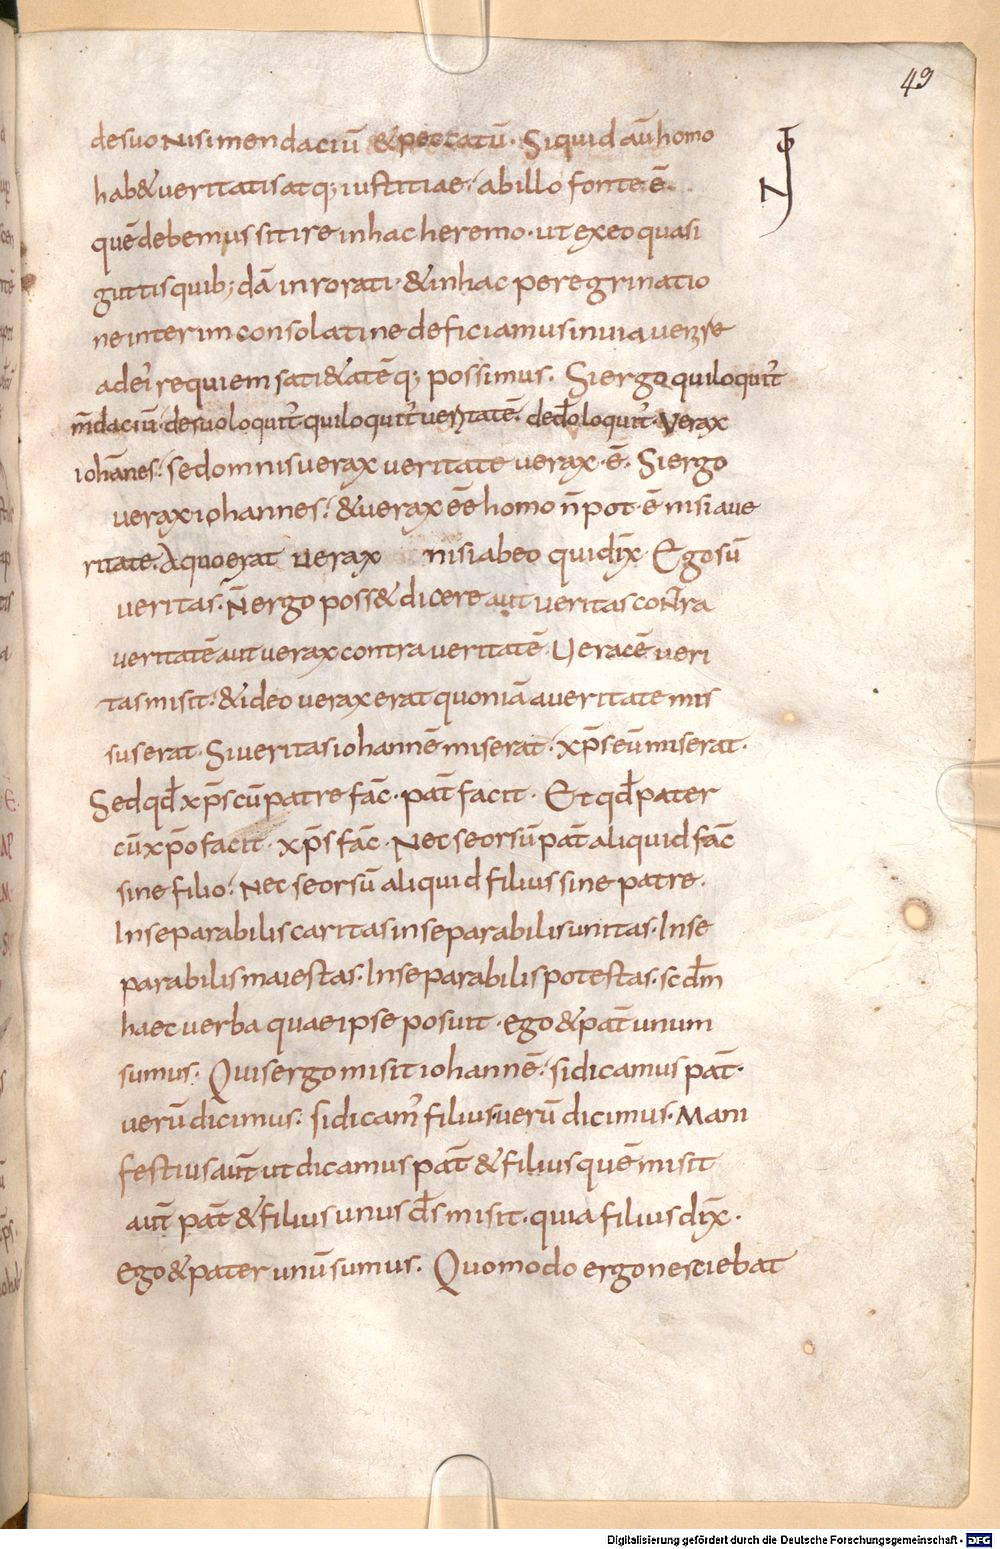 49
desuo Nisi mendaciū &peccatū· Siquid aū homo
hab& veritatis atq; iustitiae· abillo fonte ē·
quē debemus sitire inhac heremo· ut exeo quasi
guttis quib; dā inrorati· & inhac peregrinatio
ne interim consolati ne deficiamus inuia
adei᾽ requiem sati&atē q; possimus· Siergo quiloquit᾽
m̄daciū· desuo loquit᾽· quiloquit᾽ veritatē· dedō loquit᾽· Verax
iohān̄es· sed omnis verax veritate verax· ē· Siergo
verax iohannes· & verax eē homo n̄ pot· ē nisi aue
ritate· Aquo erat verax nisi abeo quidix̄· Ego sū
veritas· N̄ ergo poss& dicere aut veritas contra
veritatē aut verax contra veritatē· Veracē veri
tas misit· & ideo verax erat quoniā averitate mis
sus erat· Si veritas iohannē miserat· xp̄s eū miserat·
Sed qđ xp̄s cū patre fac̄· pat̄ facit· Et qđ pater
cū xp̄o facit· xp̄s fac̄· Nec seorsū pat̄ aliquid fac̄
sine filio· Nec seorsū aliquid filius sine patre·
Inseparabilis caritas inseparabilis unitas· Inse
parabilis maiestas· Inseparabilis potestas· scđm
haec verba quae ipse posuit· ego & pat̄ unum
sumus· Quis ergo misit iohannē· si dicamus pat̄·
verū dicimus· si dicam᾽ filius· verū dicimus· Mani
festius aūt ut dicamus pat̄ & filius quē misit
aūt pat̄ & filius unus d̄s misit· quia filius dix̄·
ego & pater unū sumus· Quomodo ergo nesciebat
Digitalisierung gefördert durch die Deutsche Forschungsgemeinschaft - DFG